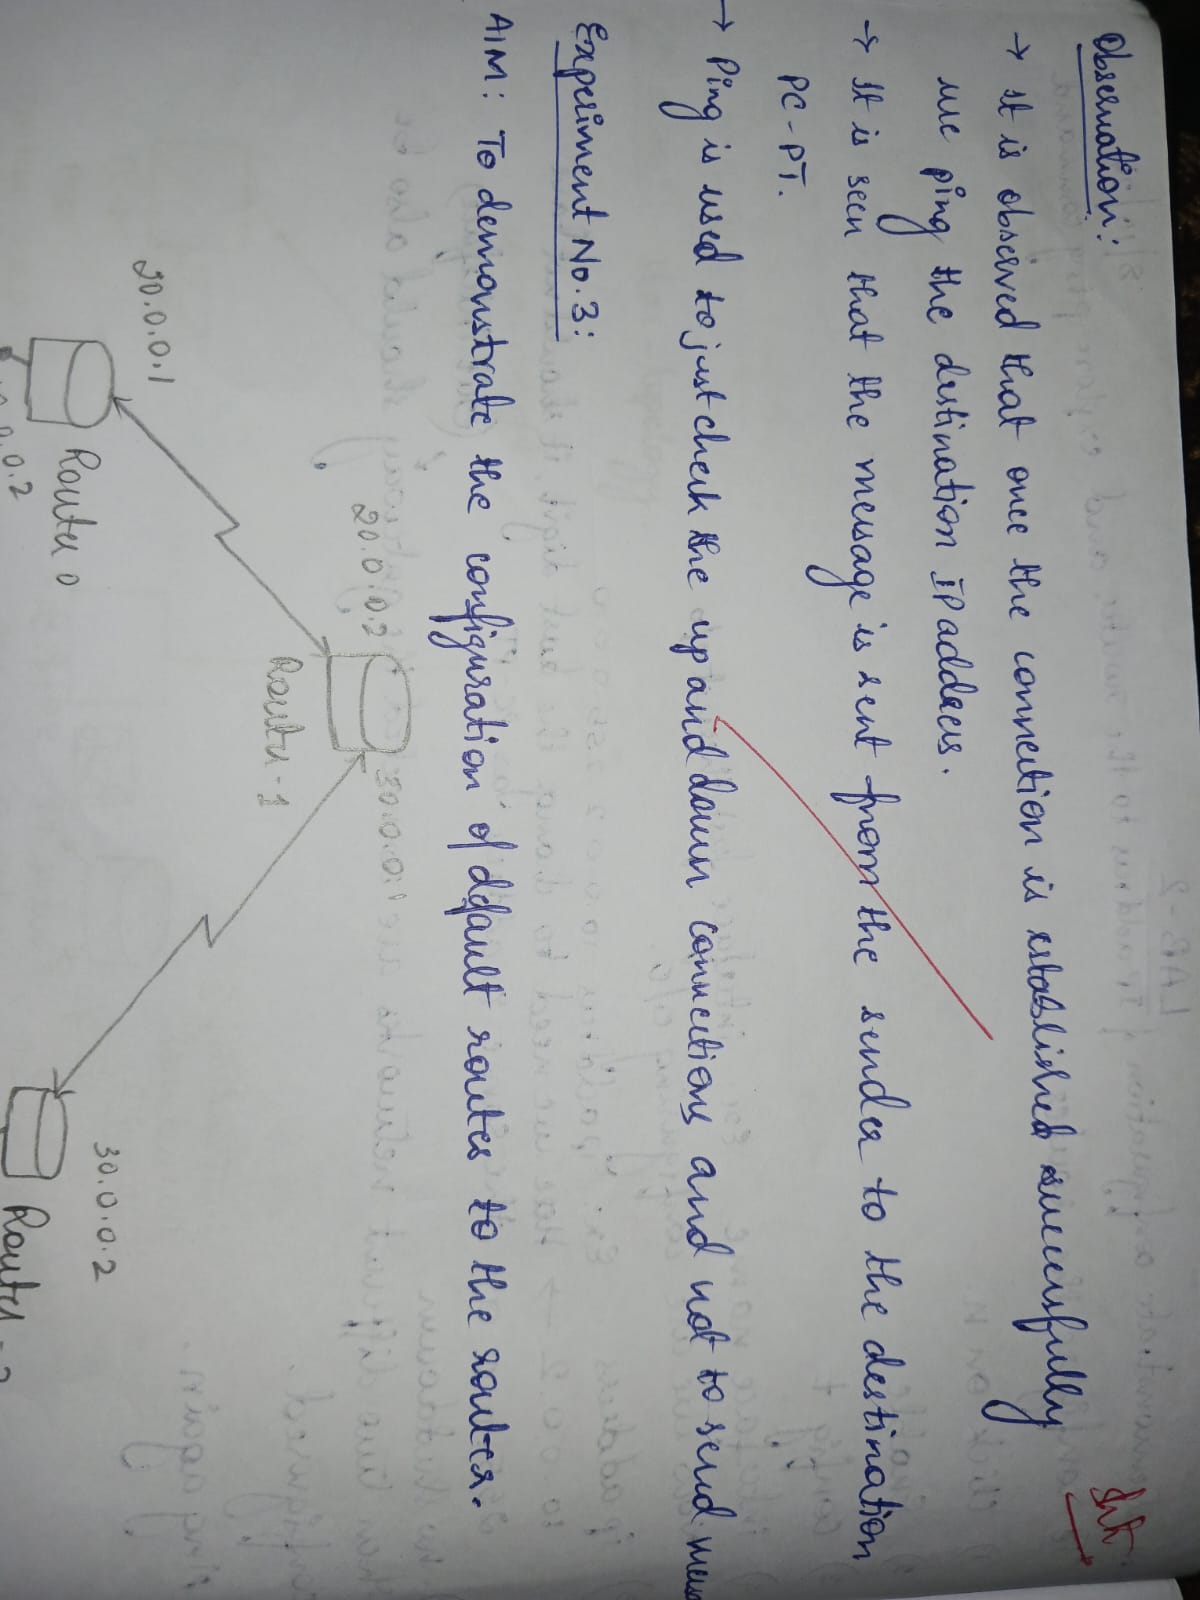 Observation:
→ It is observed that once the connection is established successfully
we ping the destination IP address.
→ It is seen that the message is sent from the sender to the destination
PC-PT.
→ Ping is used to just check the up and down connections and not to send
Experiment No. 3:
AIM: To demonstrate the configuration of default routes to the router.
20.0.0.2 30.0.0.1
20.0.0.1 Router-1 30.0.0.2
Router 0 Router
0.0.2